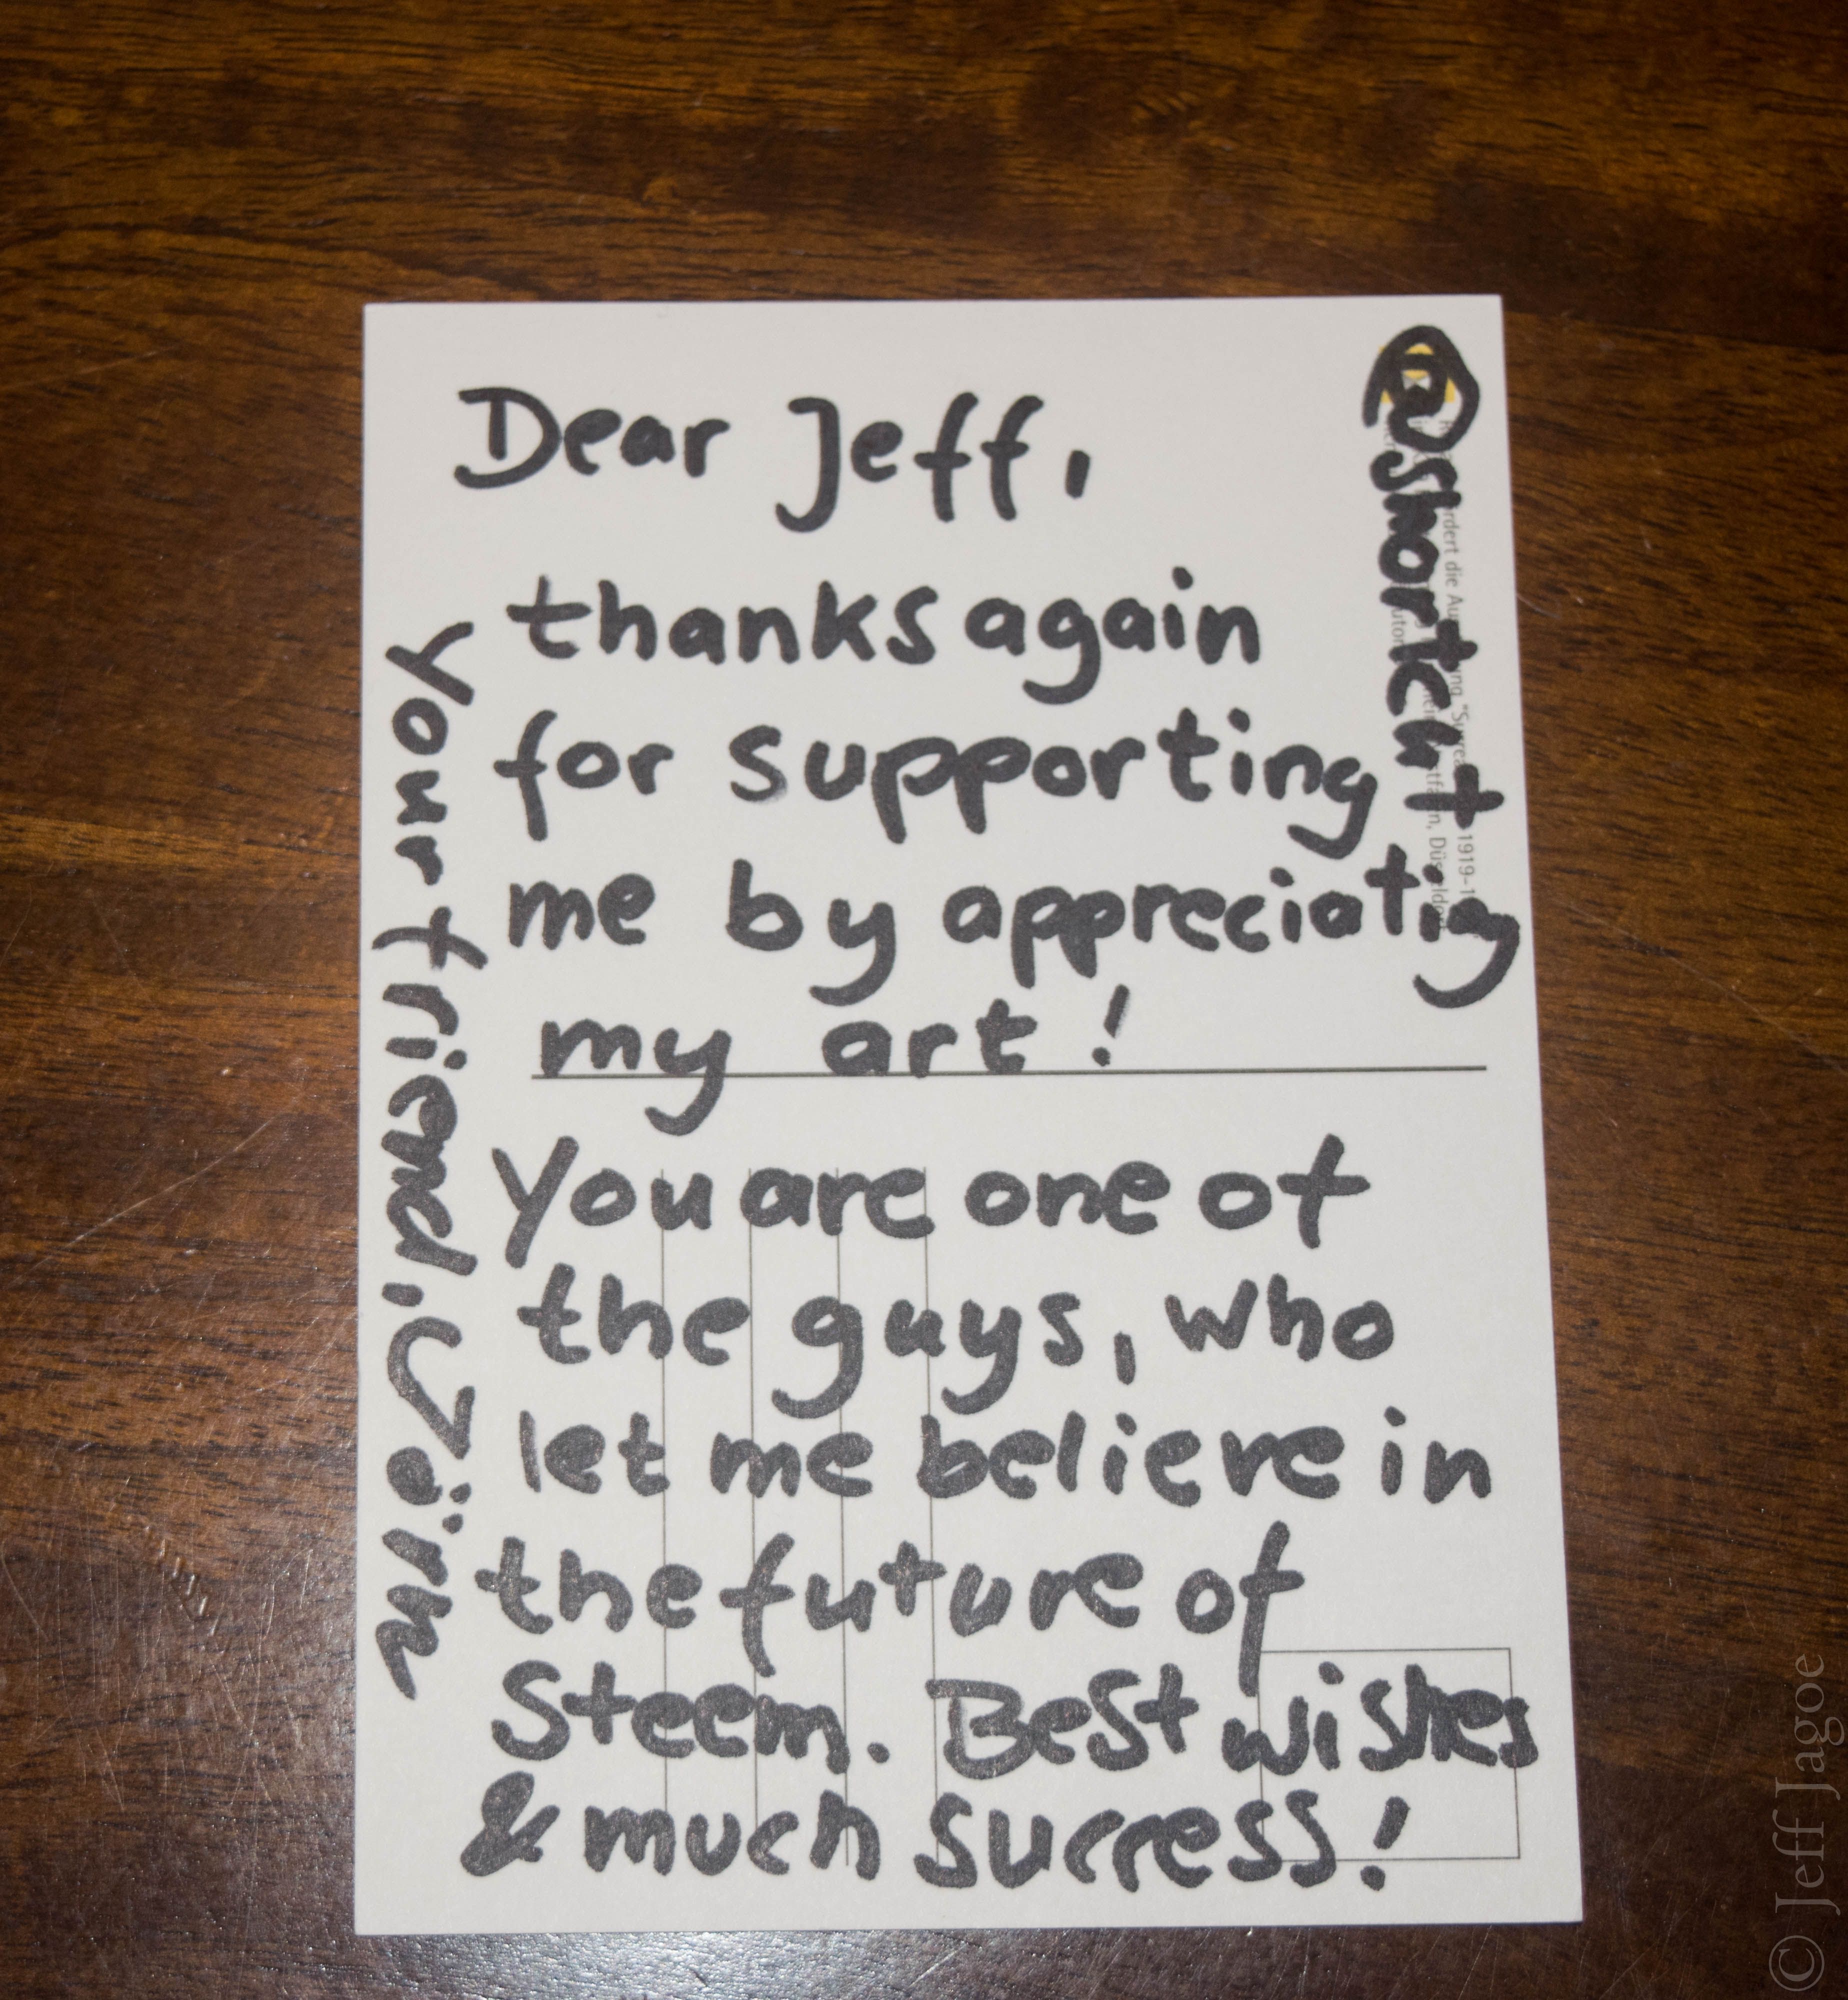 Dear Jeff,
thanks again
for supporting
me by appreciatig
my art!
You are one of
the guys, who
let me believe in
the future of
Steem. Best wishes
& much success!
Your friend, Jörn
@shortcut
© Jeff Jagoe